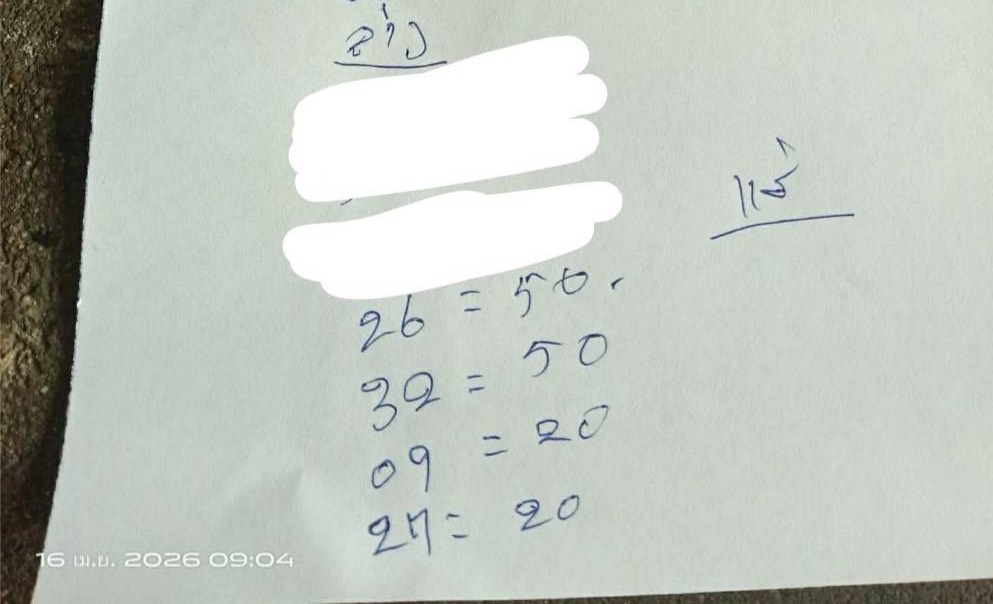 ล่าง
แซ้
26 = 50.
32 = 50
09 = 20
27 = 20
16 เม.ย. 2026 09:04